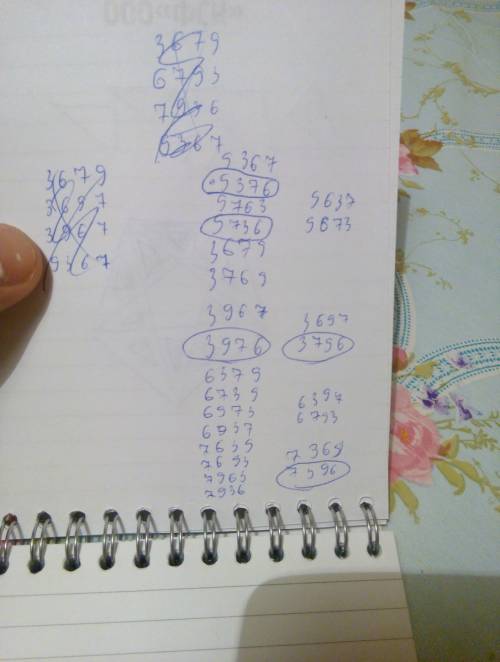 ООО«ФСК»
3679
6793
7936
9367
3679
3697
3967
9367
9367
9376
9763
9736
9637
9673
3679
3769
3967
3697
3976
3796
6379
6739
6973
6937
6397
6793
7639
7693
7963
7936
7369
7396